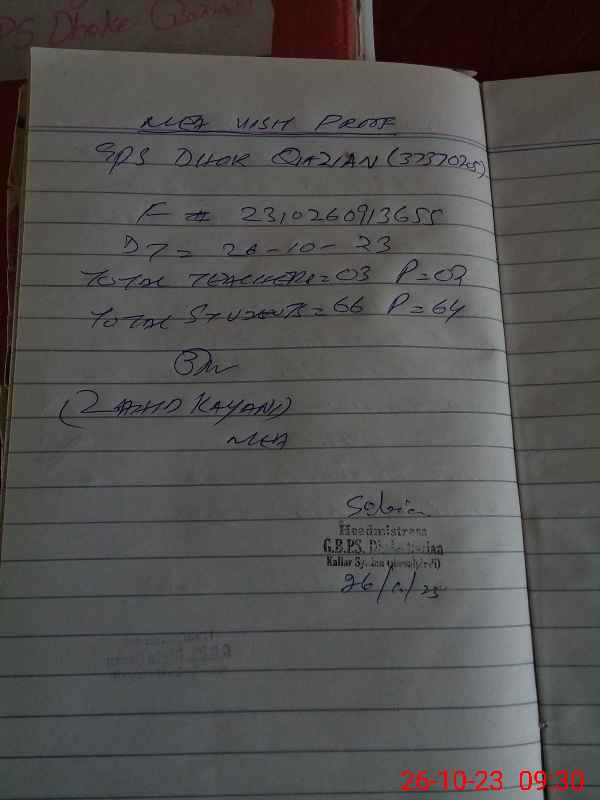 PS Dhoke Qazian
MEA VISIT PROOF
GPS DHOK QAZIAN (37370205)
F # 2310260913655
DT = 26-10-23
TOTAL TEACHERS = 03 P = 02
TOTAL STUDENTS = 66 P = 64
(ZAHID KAYANI)
MEA
Sabia
Headmistress
G.B.P.S. Dhoke Qazian
Kallar Syedan (Rawalpindi)
26/10/23
26-10-23 09:30